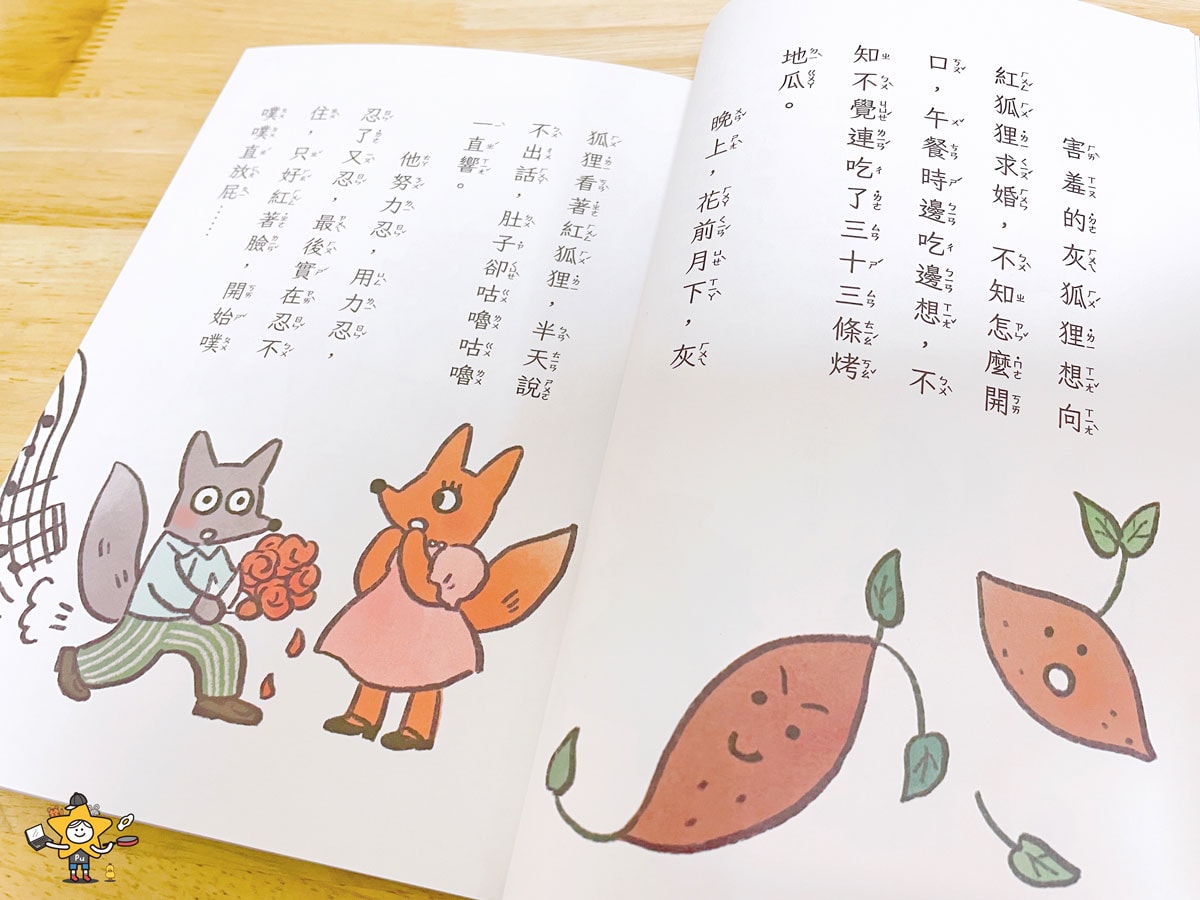 害羞的灰狐狸想向
紅狐狸求婚，不知怎麼開
口，午餐時邊吃邊想，不
知不覺連吃了三十三條烤
地瓜。
晚上，花前月下，灰
狐狸看著紅狐狸，半天說
不出話，肚子卻咕嚕咕嚕
一直響。
他努力忍，用力忍，
忍了又忍，最後實在忍不
住，只好紅著臉，開始噗
噗噗直放屁……
Pu